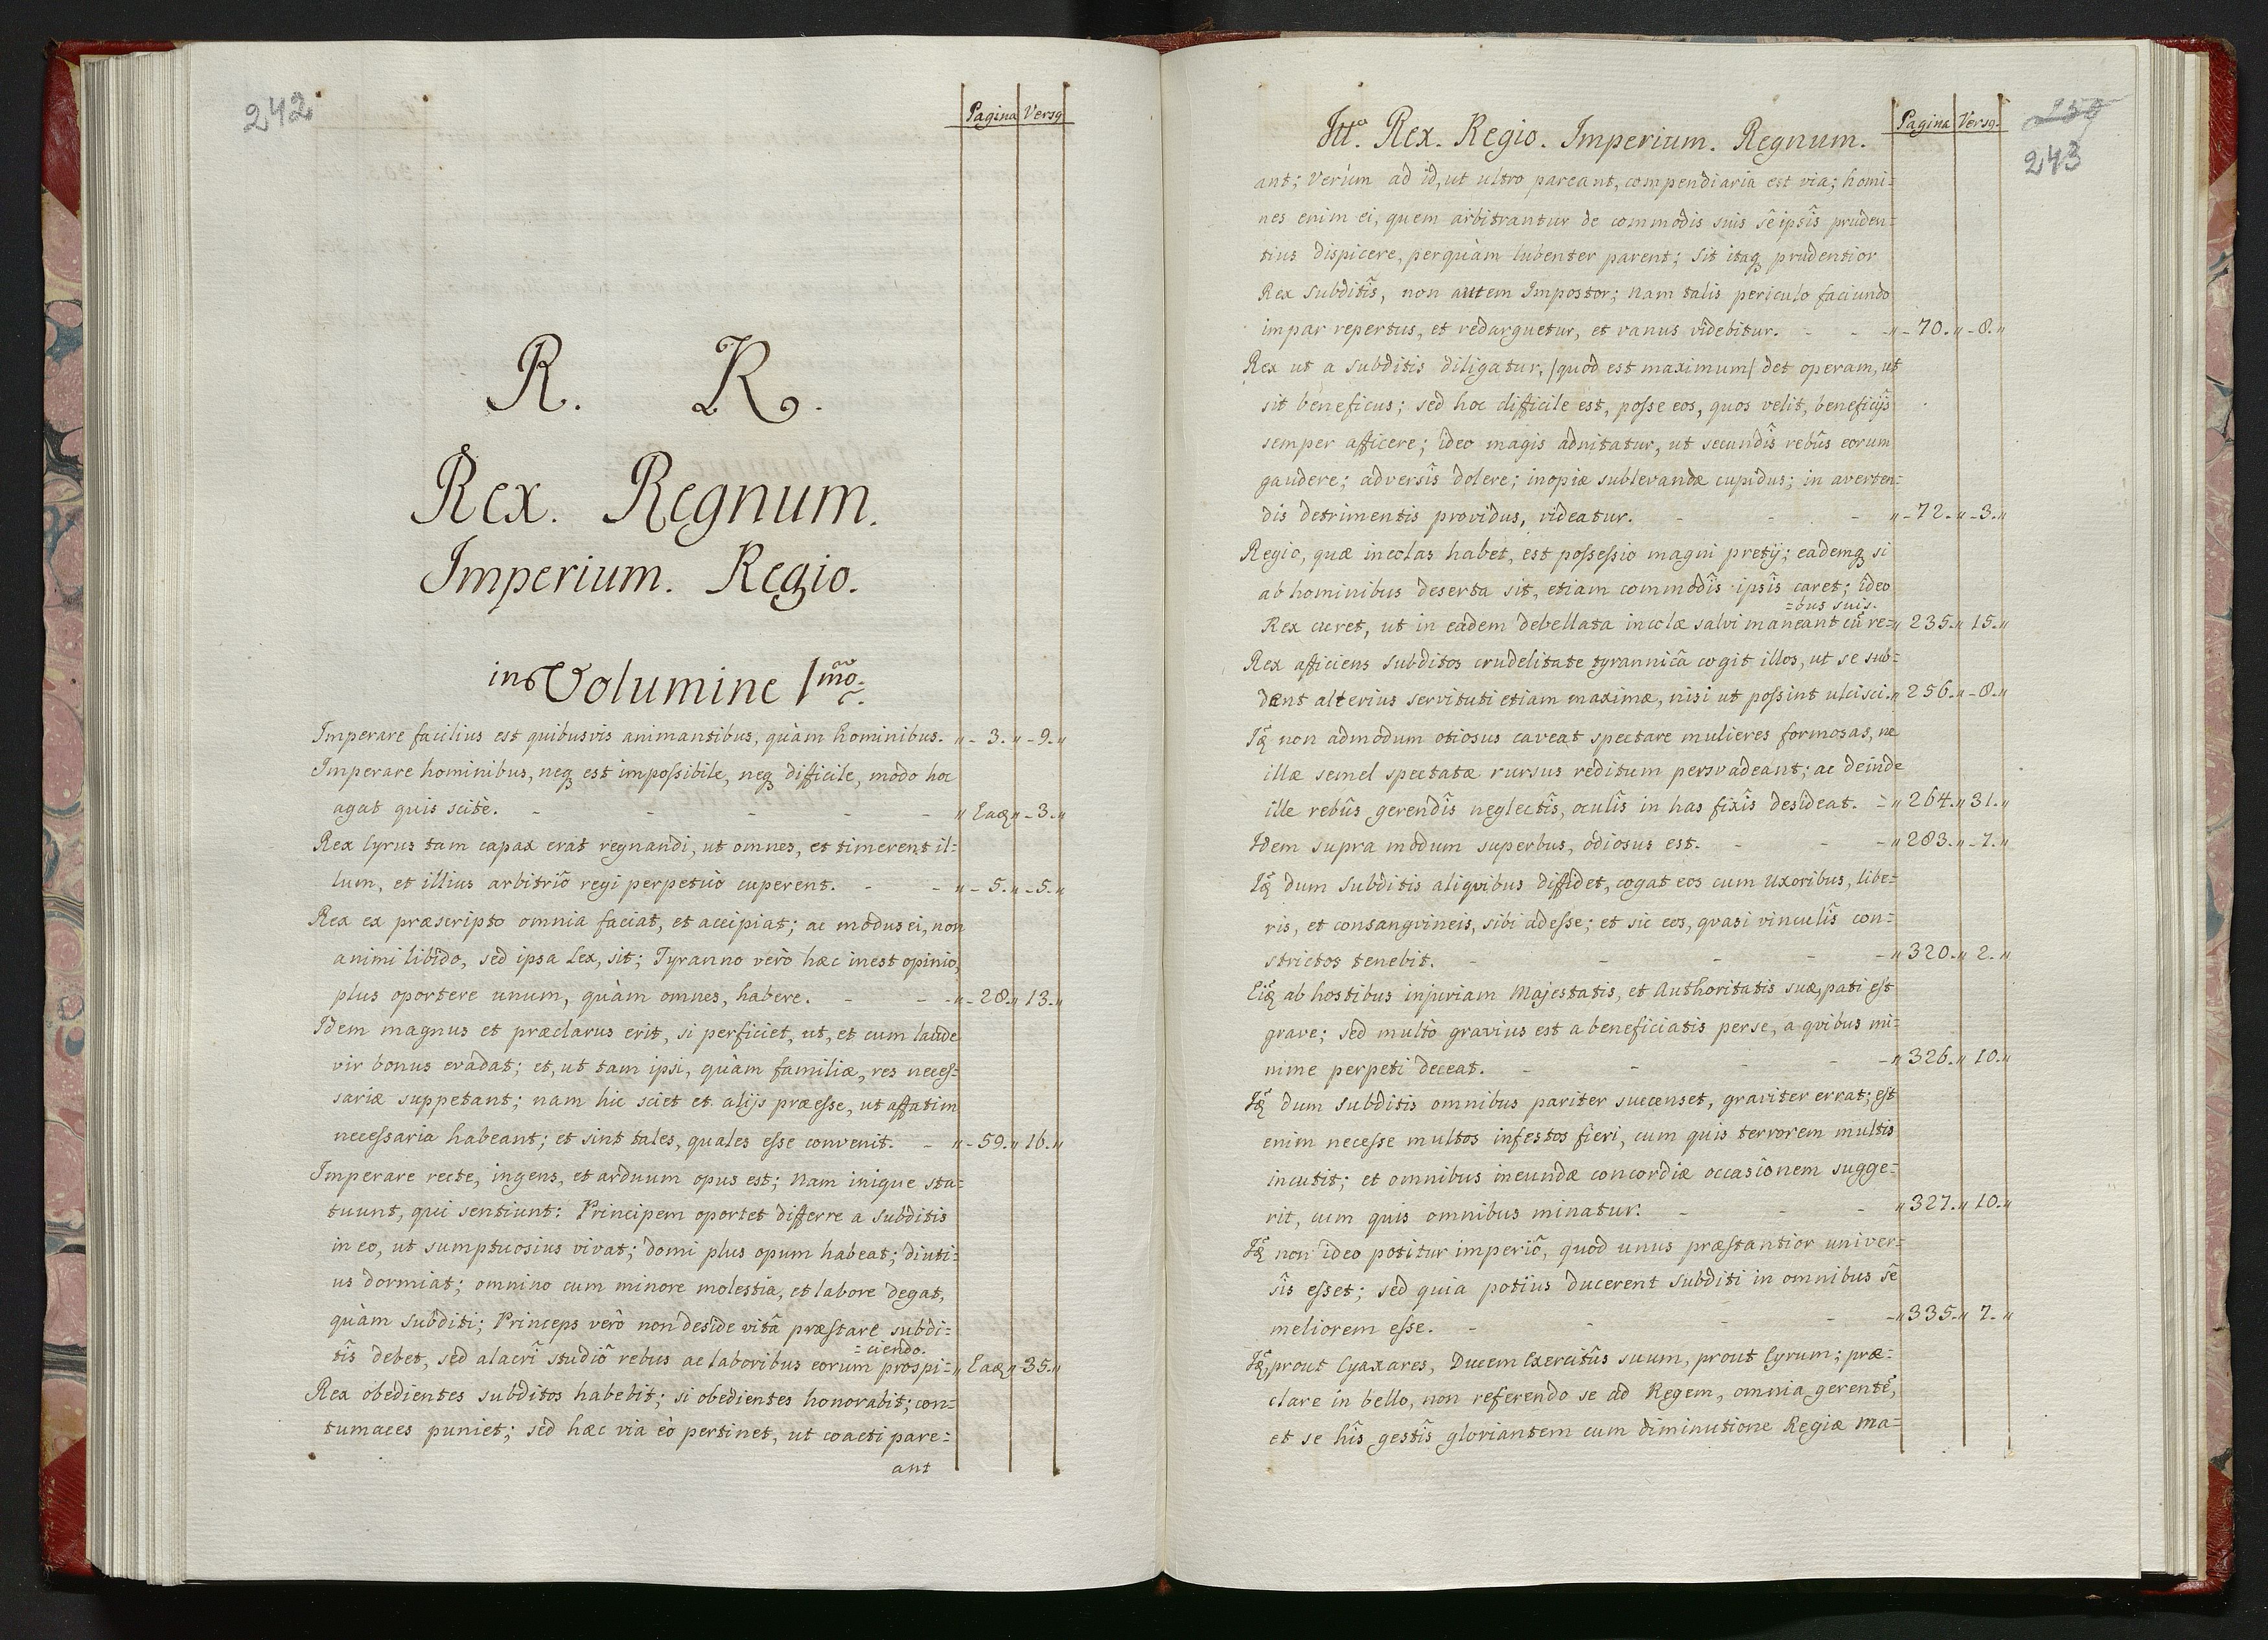 242
Pagina Versq
R. R.
Rex. Regnum.
Imperium. Regio.
in Volumine 1mo.
Imperare facilius est quibusvis animantibus, quàm hominibus. „ - 3. „ - 9. „
Imperare hominibus, neq est impossibile, neq difficile, modo hoc
agat quis scitè. - - - - - „ Eaq „ - 3. „
Rex Cyrus tam capax erat regnandi, ut omnes, et timerent il=
lum, et illius arbitriô regi perpetuò cuperent. - - „ - 5. „ - 5. „
Rex ex præscripto omnia faciat, et accipiat; ac modus ei, non
animi libido, sed ipsa Lex, sit; Tyranno verò hæc inest opinio,
plus oportere unum, quàm omnes, habere. - - - „ - 28. „ 13. „
Idem magnus et præclarus erit, si perficiet, ut, et cum laude
vir bonus evadat; et, ut tam ipsi, quàm familiæ, res neces=
sariæ suppetant; nam hic sciet et alijs præesse, ut affatim
necessaria habeant; et sint tales, quales esse convenit. - „ - 59. „ 16. „
Imperare recte, ingens, et arduum opus est; Nam inique sta=
tuunt, qui sentiunt: Principem oportet differre a subditis
in eo, ut sumptuosius vivat; domi plus opum habeat; diuti=
us dormiat; omnino cum minore molestia, et labore degat,
quàm subditi; Princeps verò non deside vitâ præstare subdi=
=ciendo.
tîs debet, sed alacrî studiô rebus ac laboribus eorum prospi= „ Eaq „ 35. „
Rex obedientes subditos habebit; si obedientes honorabit; con=
tumaces puniet; sed hæc via eò pertinet, ut coacti pare=
ant
Pagina Versq.
243
Ittᵃ. Rex. Regio. Imperium. Regnum.
ant; Verùm ad id, ut ultro pareant, compendiaria est via; homi=
nes enim ei, quem arbitrantur de commodis suis sê ipsîs pruden=
tius dispicere, perquàm lubenter parent; Sit itaq prudentior
Rex Subditîs, non autem Impostor; Nam talis periculo faciundo
impar repertus, et redarguetur, et vanus videbitur. - - - „ - 70. „ - 8. „
Rex ut a subditis diligatur, /quod est maximum/ det operam, ut
sit beneficus; sed hoc difficile est, posse eos, quos velit, beneficijs
semper afficere; ideo magis adnitatur, ut secundîs rebûs eorum
gaudere; adversîs dolere; inopiæ sublevandæ cupidus; in averten=
dis detrimentis providus, videatur. - - - „ - 72. „ - 3. „
Regio, quæ incolas habet, est possessio magni pretij; eademq si
ab hominibus deserta sit, etiam commodîs ipsîs caret; ideo
=bus suis.
Rex curet, ut in eadem debellata incolæ salvi maneant cû re= „ 235. „ 15. „
Rex afficiens subditos crudelitate tyrannicâ cogit illos, ut se sub=
dant alterius servituti etiam maximæ, nisi ut possint ulcisci. „ 256. „ - 8. „
Iq non admodum otiosus caveat spectare mulieres formosas, ne
illæ semel spectatæ rursus reditum persvadeant; ac deinde
ille rebûs gerendîs neglectîs, oculîs in has fixîs desideat. - „ 264. „ 31. „
Idem supra modum superbus, odiosus est. - - - „ 283. „ - 7. „
Iq dum Subditis aliqvibus diffidet, cogat eos cum Uxoribus, libe=
ris, et consangvineis, sibi adesse; et sic eos, qvasi vinculîs con=
strictos tenebit. - - - - - „ 320. „ 2. „
Eiq ab hostibus injuriam Majestatis, et Authoritatis suæ, pati est
grave; sed multò gravius est a beneficiatis perse, a qvibus mi=
nime perpeti deceat. - - - - - „ 326. „ 10. „
Iq dum Subditis omnibus pariter succenset, graviter errat; est
enim necesse multos infestos fieri, cum quis terrorem multis
incutit; et omnibus ineundæ concordiæ occasionem sugge=
rit, cum quis omnibus minatur. - - - „ 327. „ 10. „
Iq non ideo potitur imperiô, quod unus præstantior univer=
sîs esset; sed quia potius ducerent Subditi in omnibus sê
meliorem esse. - - - - - „ 335. „ 7. „
Iq, prout Cyaxares, Ducem Exercitûs suum, prout Cyrum; præ=
clare in bello, non referendo se ad Regem, omnia gerentê,
et se hîs gestîs gloriantem cum diminutione Regiæ Ma=